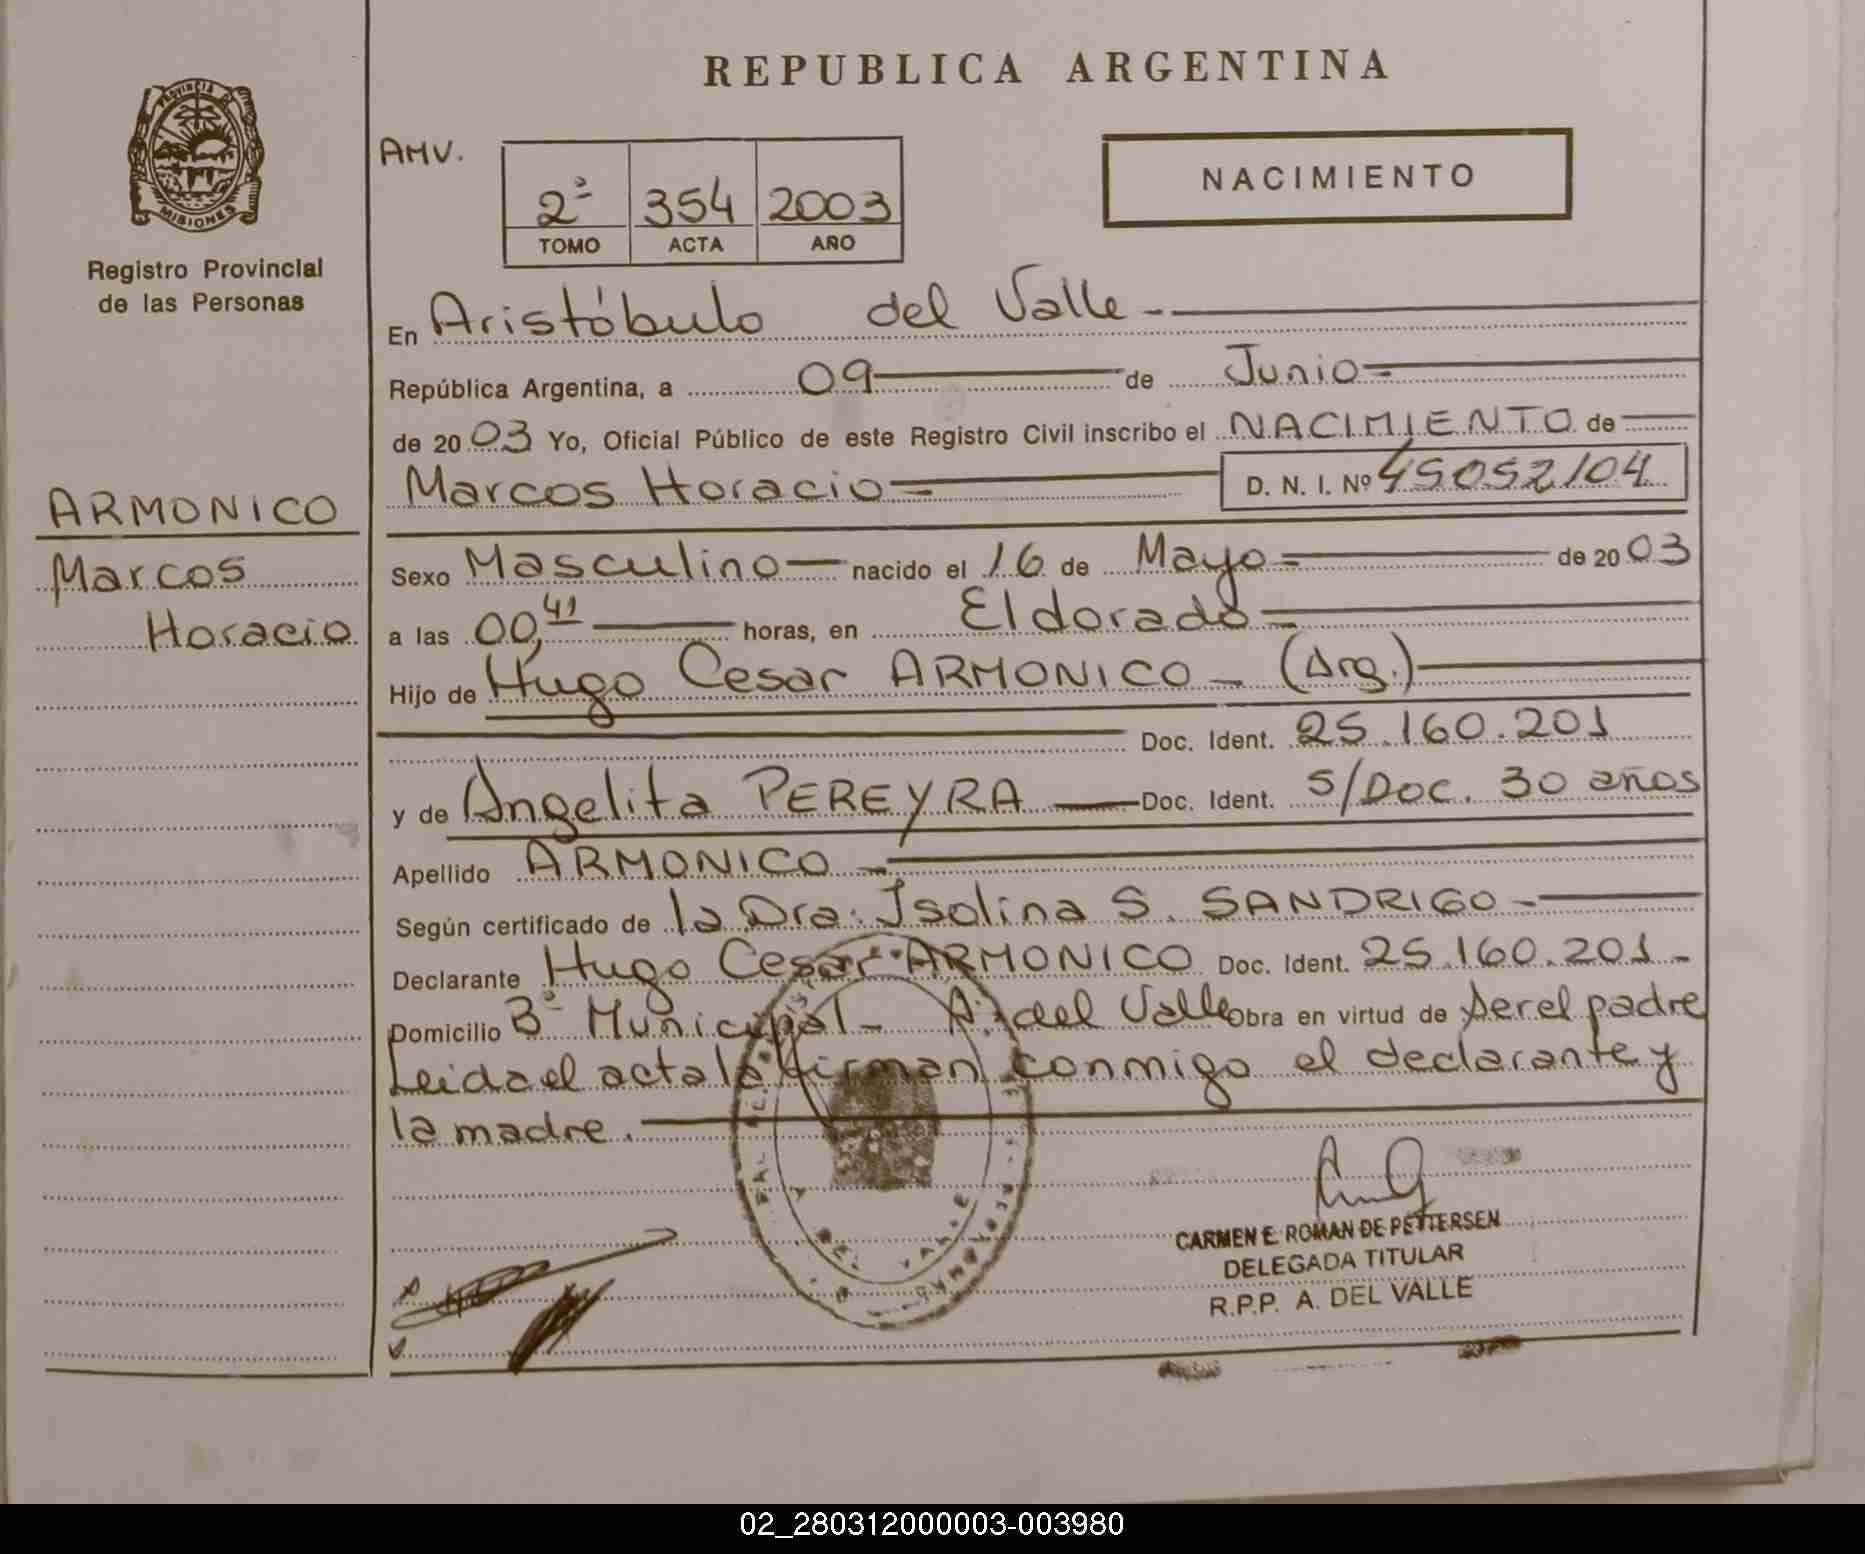 REPUBLICA ARGENTINA
PROVINCIA DE MISIONES
Registro Provincial
de las Personas
AMV.
2º 354 2003
TOMO ACTA AÑO
NACIMIENTO
En Aristóbulo del Valle
República Argentina, a 09 de Junio
de 2003 Yo, Oficial Público de este Registro Civil inscribo el NACIMIENTO de
Marcos Horacio D. N. I. Nº 45052104
ARMONICO
Marcos
Horacio
Sexo Masculino nacido el 16 de Mayo de 2003
a las 00,41 horas, en Eldorado
Hijo de Hugo Cesar ARMONICO (Arg.)
Doc. Ident. 25.160.201
y de Angelita PEREYRA Doc. Ident. S/Doc. 30 años
Apellido ARMONICO
Según certificado de la Dra. Isolina S. SANDRIGO
Declarante Hugo Cesar ARMONICO Doc. Ident. 25.160.201
Domicilio Bº Municipal - A. del Valle Obra en virtud de ser el padre
Leida el acta la firman conmigo el declarante y
la madre.
CARMEN E. ROMAN DE PETTERSEN
DELEGADA TITULAR
R.P.P. A. DEL VALLE
02_280312000003-003980